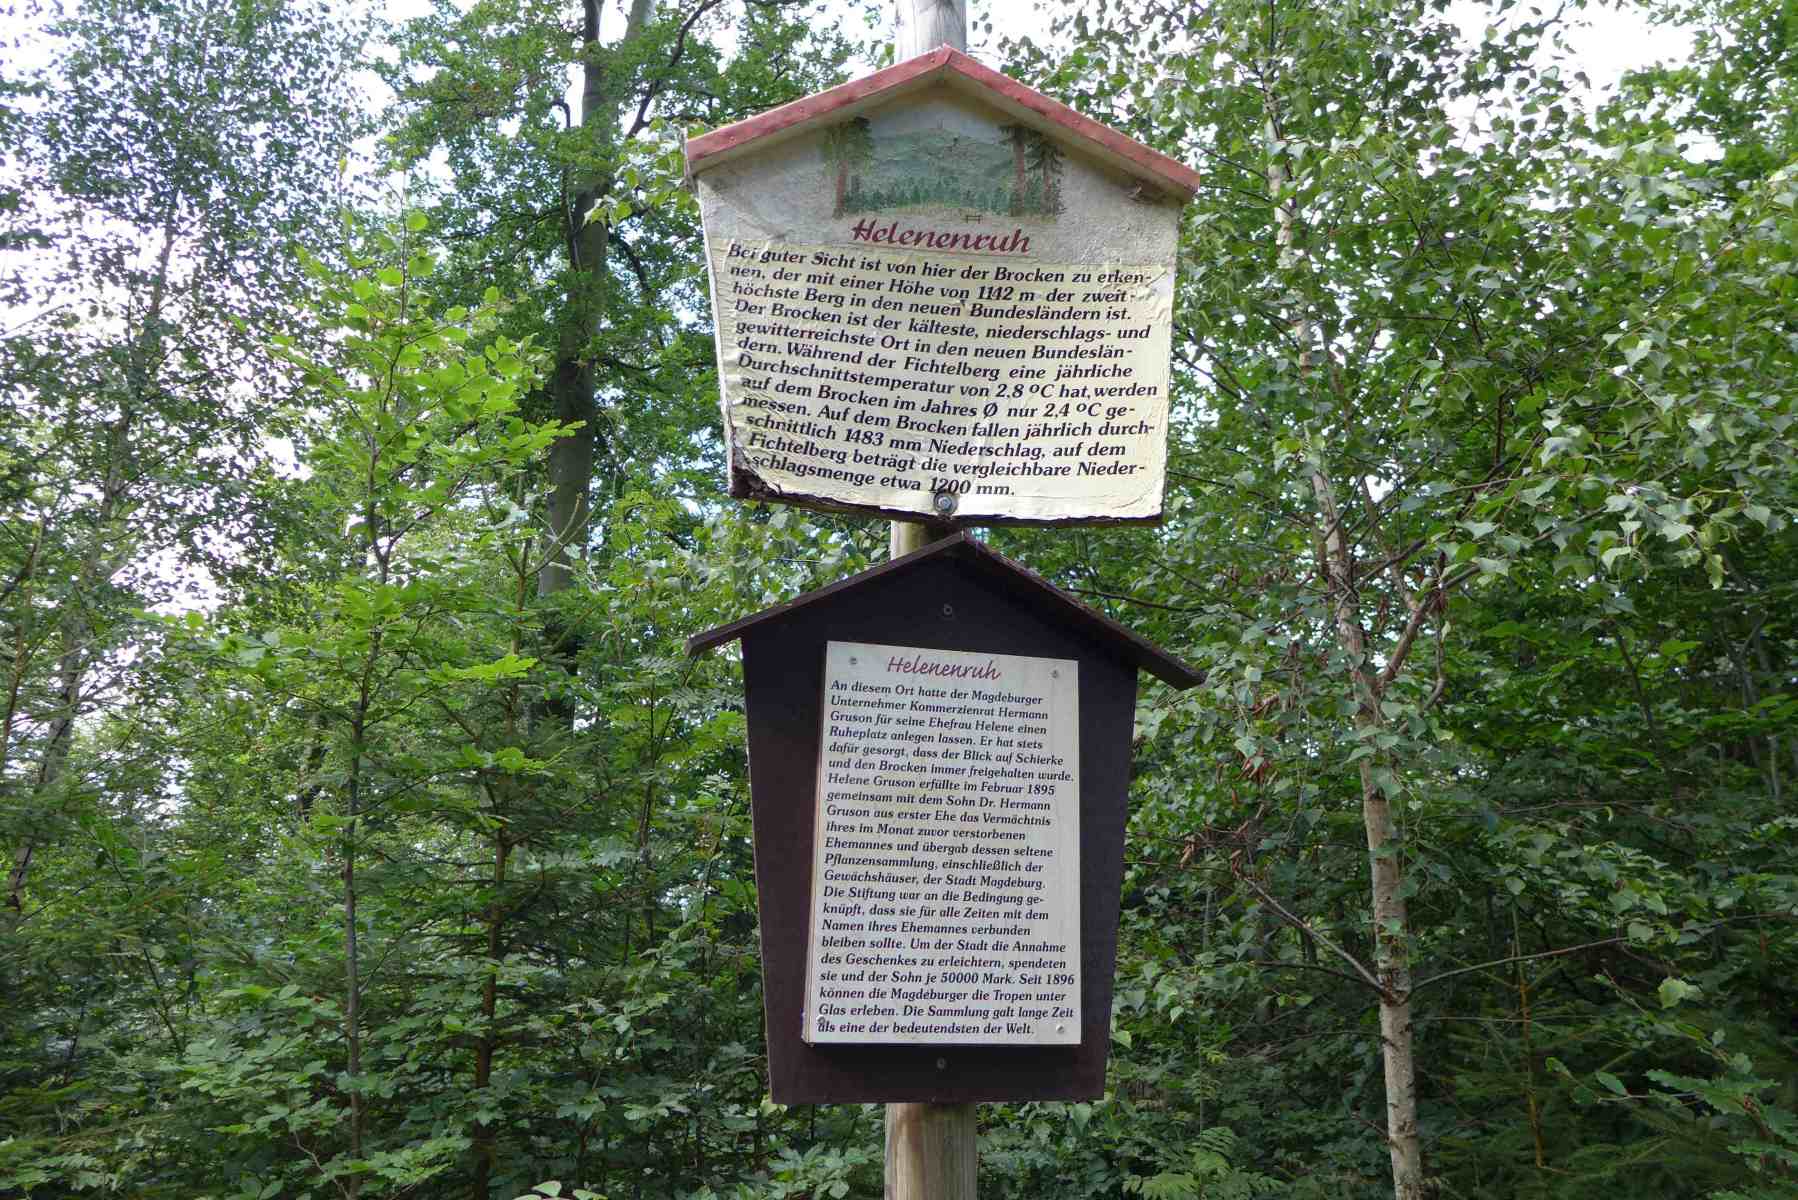 Helenenruh
Bei guter Sicht ist von hier der Brocken zu erken-
nen, der mit einer Höhe von 1142 m der zweit-
höchste Berg in den neuen Bundesländern ist.
Der Brocken ist der kälteste, niederschlags- und
gewitterreichste Ort in den neuen Bundeslän-
dern. Während der Fichtelberg eine jährliche
Durchschnittstemperatur von 2,8 °C hat, werden
auf dem Brocken im Jahres Ø nur 2,4 °C ge-
messen. Auf dem Brocken fallen jährlich durch-
schnittlich 1483 mm Niederschlag, auf dem
Fichtelberg beträgt die vergleichbare Nieder-
schlagsmenge etwa 1200 mm.
Helenenruh
An diesem Ort hatte der Magdeburger
Unternehmer Kommerzienrat Hermann
Gruson für seine Ehefrau Helene einen
Ruheplatz anlegen lassen. Er hat stets
dafür gesorgt, dass der Blick auf Schierke
und den Brocken immer freigehalten wurde.
Helene Gruson erfüllte im Februar 1895
gemeinsam mit dem Sohn Dr. Hermann
Gruson aus erster Ehe das Vermächtnis
ihres im Monat zuvor verstorbenen
Ehemannes und übergab dessen seltene
Pflanzensammlung, einschließlich der
Gewächshäuser, der Stadt Magdeburg.
Die Stiftung war an die Bedingung ge-
knüpft, dass sie für alle Zeiten mit dem
Namen ihres Ehemannes verbunden
bleiben sollte. Um der Stadt die Annahme
des Geschenkes zu erleichtern, spendeten
sie und der Sohn je 50000 Mark. Seit 1896
können die Magdeburger die Tropen unter
Glas erleben. Die Sammlung galt lange Zeit
als eine der bedeutendsten der Welt.